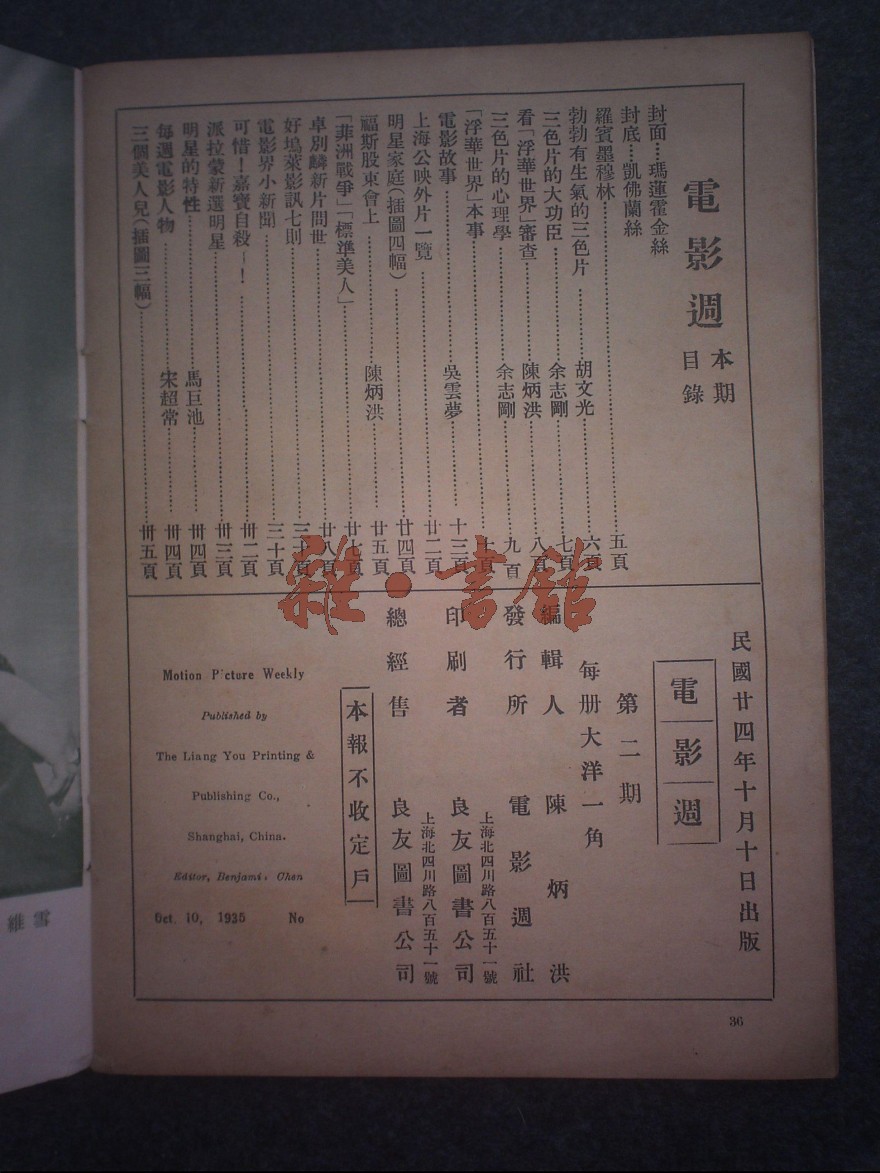 電影週
本期
目錄
封面…瑪蓮霍金絲
封底…凱佛蘭絲
羅賓墨穆林…五頁
勃勃有生氣的三色片…胡文光…六頁
三色片的大功臣…余志剛…七頁
看「浮華世界」審查…陳炳洪…八頁
三色片的心理學…余志剛…九頁
「浮華世界」本事…十頁
電影故事…吳雲夢…十三頁
上海公映外片一覽…廿二頁
明星家庭(插圖四幅)…廿四頁
福斯股東會上…陳炳洪…廿五頁
「菲洲戰爭」「標準美人」…廿七頁
卓別麟新片問世…廿八頁
好塢萊影訊七則…三十頁
電影界小新聞…三十頁
可惜!嘉寶自殺—!…卅二頁
派拉蒙新選明星…卅三頁
明星的特性…馬巨池…卅四頁
每週電影人物…宋超常…卅四頁
三個美人兒(插圖三幅)…卅五頁
民國廿四年十月十日出版
電影週
第二期
每册大洋一角
編輯人 陳炳洪
發行所 電影週社
上海北四川路八百五十一號
印刷者 良友圖書公司
上海北四川路八百五十一號
總經售 良友圖書公司
本報不收定戶
Motion Picture Weekly
Published by
The Liang You Printing &
Publishing Co.,
Shanghai, China.
Editor, Benjami: Chen
Oct. 10, 1935 No
36
維雲
雜·書館